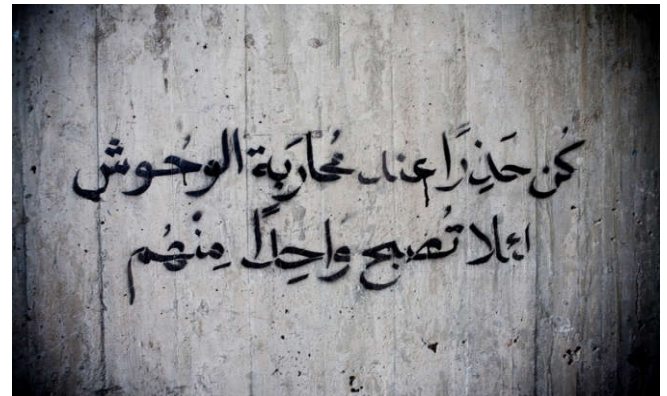 كُن حَذِرًا عند مُحارَبِة الوحُوش
لئلا تُصبح واحِدًا مِنْهُم